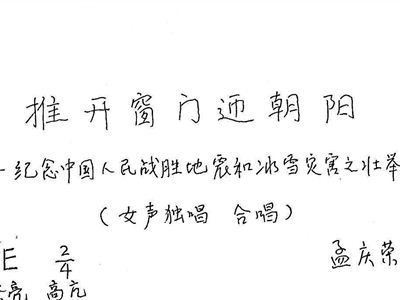 推开窗门迎朝阳
纪念中国人民战胜地震和冰雪灾害之壮举
(女声独唱 合唱)
E 2/4 孟庆荣
亮 高亢